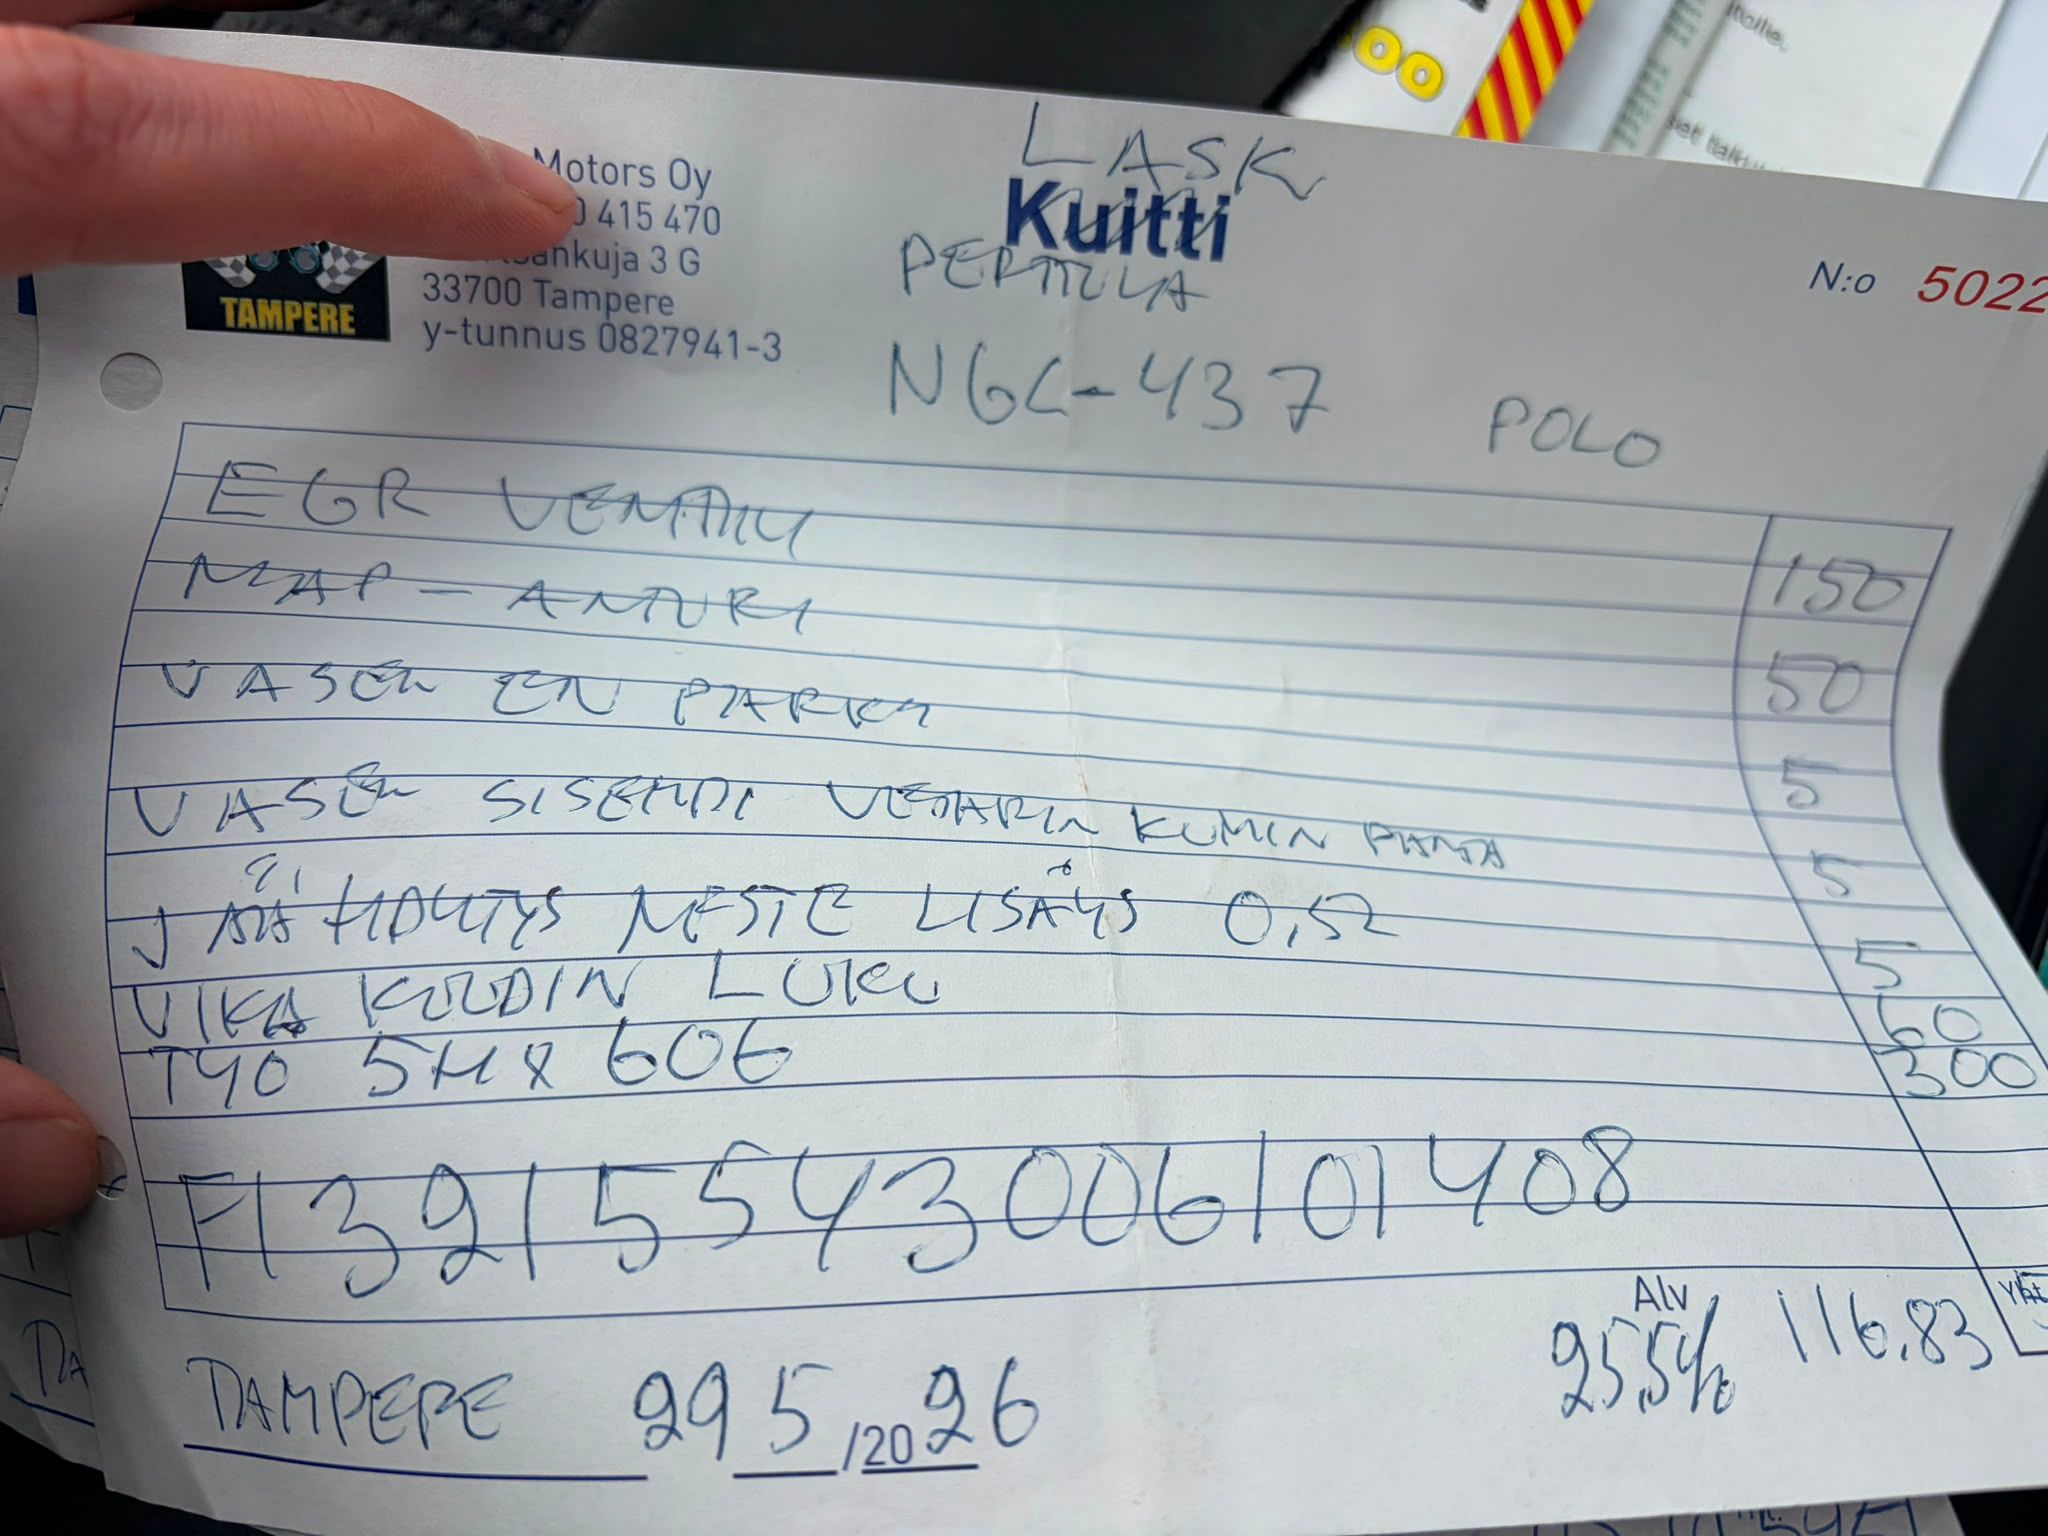 LASK
Motors Oy
Kuitti
0 415 470
ankuja 3 G
PERTTULA
N:o 5022
33700 Tampere
TAMPERE
y-tunnus 0827941-3
NGL-437 POLO
EGR VENTTIILI 150
MAP-ANTURI 50
VASEN EN PARKKI 5
VASEN SISEMPI VETARIN KUMIN PANTA 5
JÄÄHDYTYS NESTE LISÄYS 0,5L 5
VIKA KOODIN LUKU 60
TYÖ 5H x 60€ 300
FI3915543006101408
Alv
25,5% 116.83
TAMPERE 29 5 /20 26